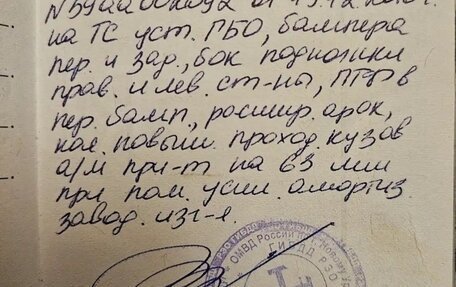 на ТС уст. ГБО, бампера
пер. и зад., бок подножки
прав. и лев. ст-ны, ПТФ в
пер. бамп., расшир. арок,
кол. повыш. проход. кузов
а/м при-т на 63 мм
при пом. усил. амортиз.
завод. изг-я.
ОМВД России по г. Новому Ур
ГИБДД РЭО